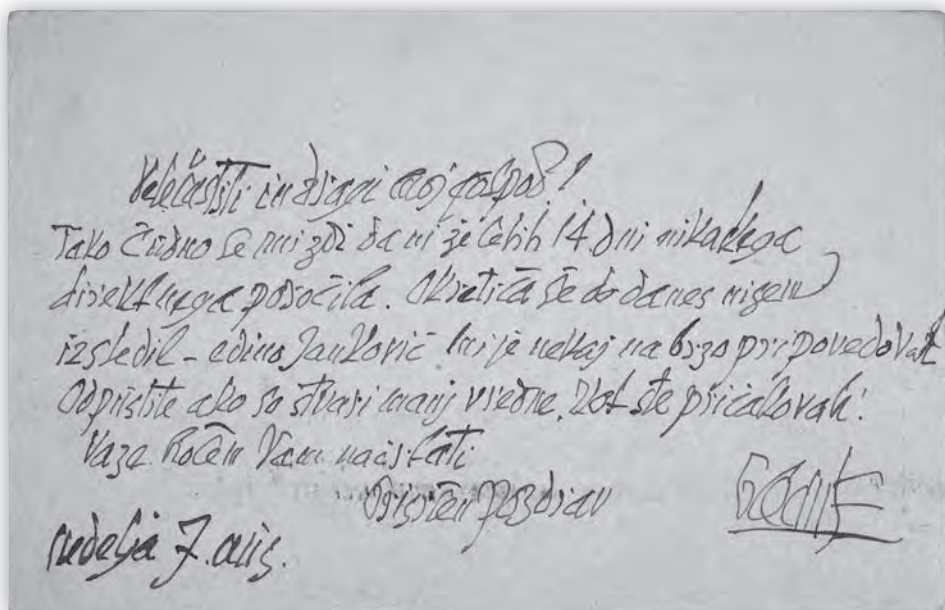 Velečastiti in dragi moj gospod!
Tako čudno se mi zdi da ni že celih 14. dni nikakega
direktnega poročila. Okretiča še do danes nisem
izsledil - edino Janković mi je nekaj na brzo pripovedoval
Odpustite ako so stvari manj vredne, kot ste pričakovali!
Vaze hočem Vam
Prisrčen pozdrav
nedelja 7.